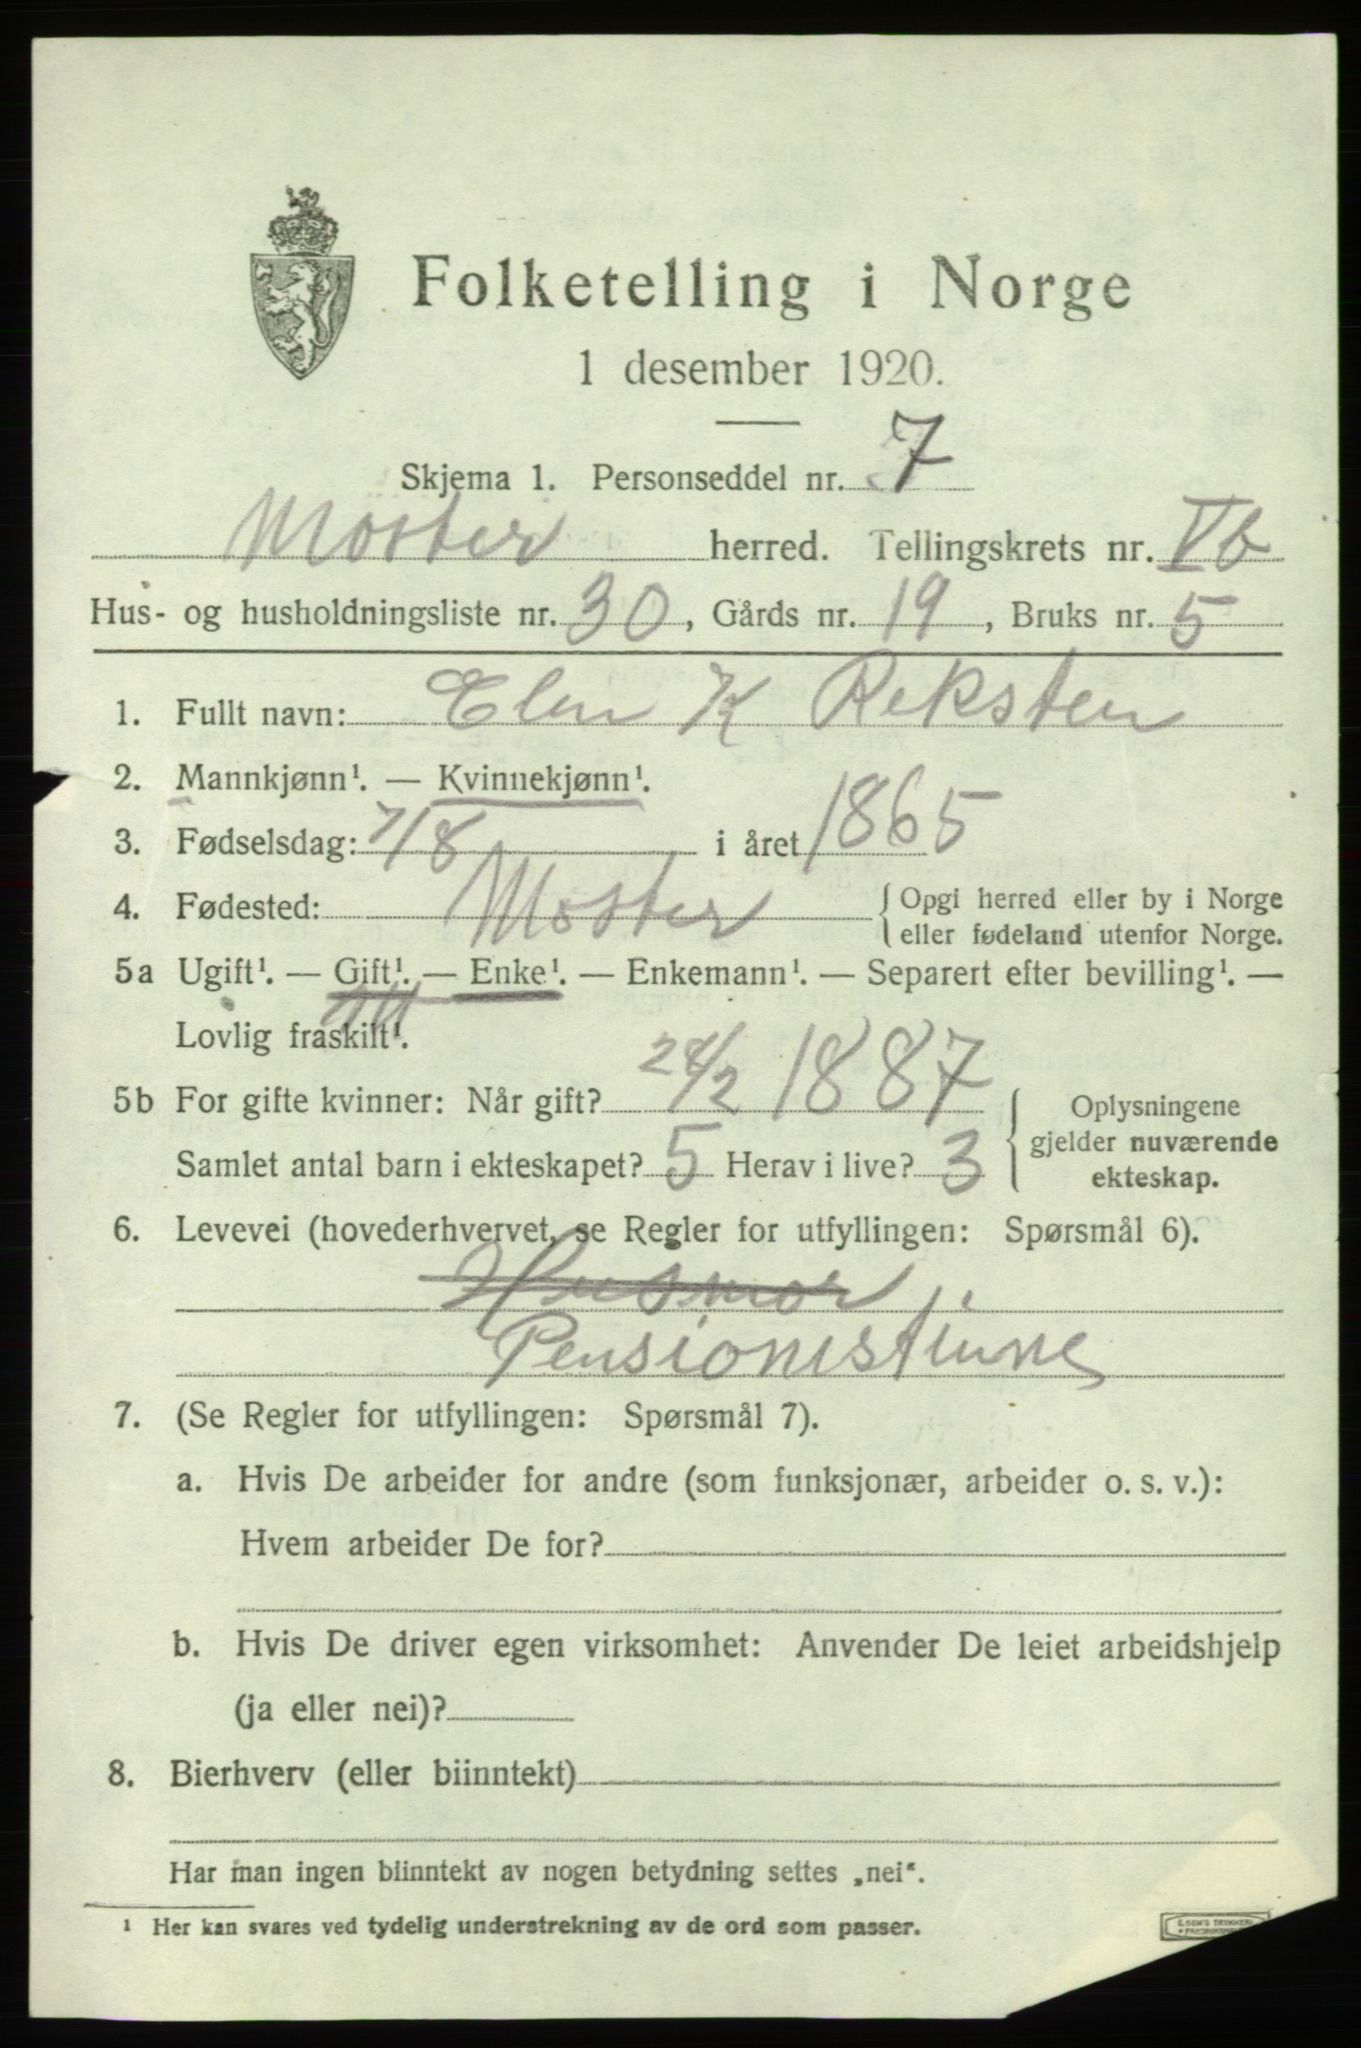 Folketelling i Norge
1 desember 1920.
Skjema 1. Personseddel nr. 7
Moster herred. Tellingskrets nr. Vb
Hus- og husholdningsliste nr. 30, Gårds nr. 19, Bruks nr. 5
1. Fullt navn: Elen K Reksten
2. Mannkjønn¹. — Kvinnekjønn¹.
3. Fødselsdag: 7/8 i året 1865
4. Fødested: Moster { Opgi herred eller by i Norge
eller fødeland utenfor Norge.
5a Ugift¹. — Gift¹. — Enke¹. — Enkemann¹. — Separert efter bevilling¹. —
Lovlig fraskilt¹.
5b For gifte kvinner: Når gift? 28/2 1887
Samlet antal barn i ekteskapet? 5 Herav i live? 3
Oplysningene
gjelder nuværende
ekteskap.
6. Levevei (hovederhvervet, se Regler for utfyllingen: Spørsmål 6).
Husmor
Pensionistinne
7. (Se Regler for utfyllingen: Spørsmål 7).
a. Hvis De arbeider for andre (som funksjonær, arbeider o. s. v.):
Hvem arbeider De for?
b. Hvis De driver egen virksomhet: Anvender De leiet arbeidshjelp
(ja eller nei)?
8. Bierhverv (eller biinntekt)
Har man ingen biinntekt av nogen betydning settes „nei“.
¹ Her kan svares ved tydelig understrekning av de ord som passer.